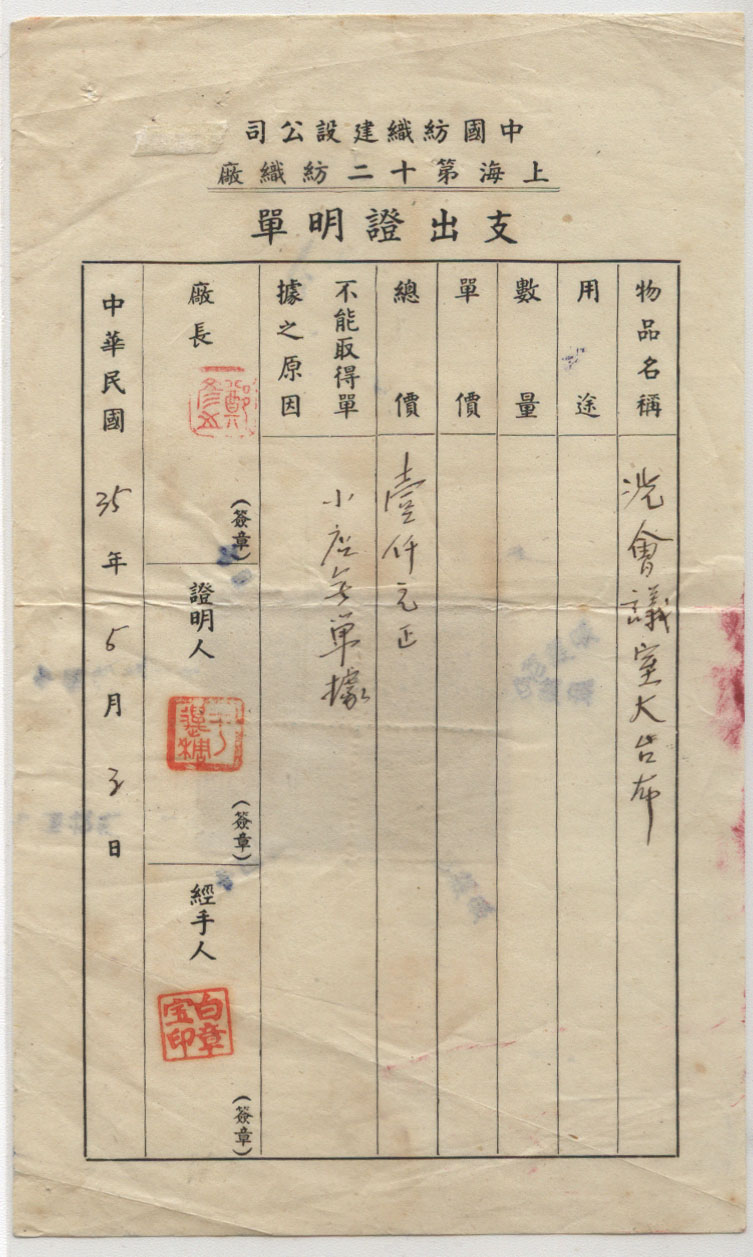 中國紡織建設公司
上海第十二紡織廠
支出證明單
物品名稱
洗會議室大台布
用途
數量
單價
總價
壹仟元正
不能取得單
據之原因
小店無單據
廠長
(簽章)
證明人
(簽章)
經手人
白章
宝印
(簽章)
中華民國35年5月3日